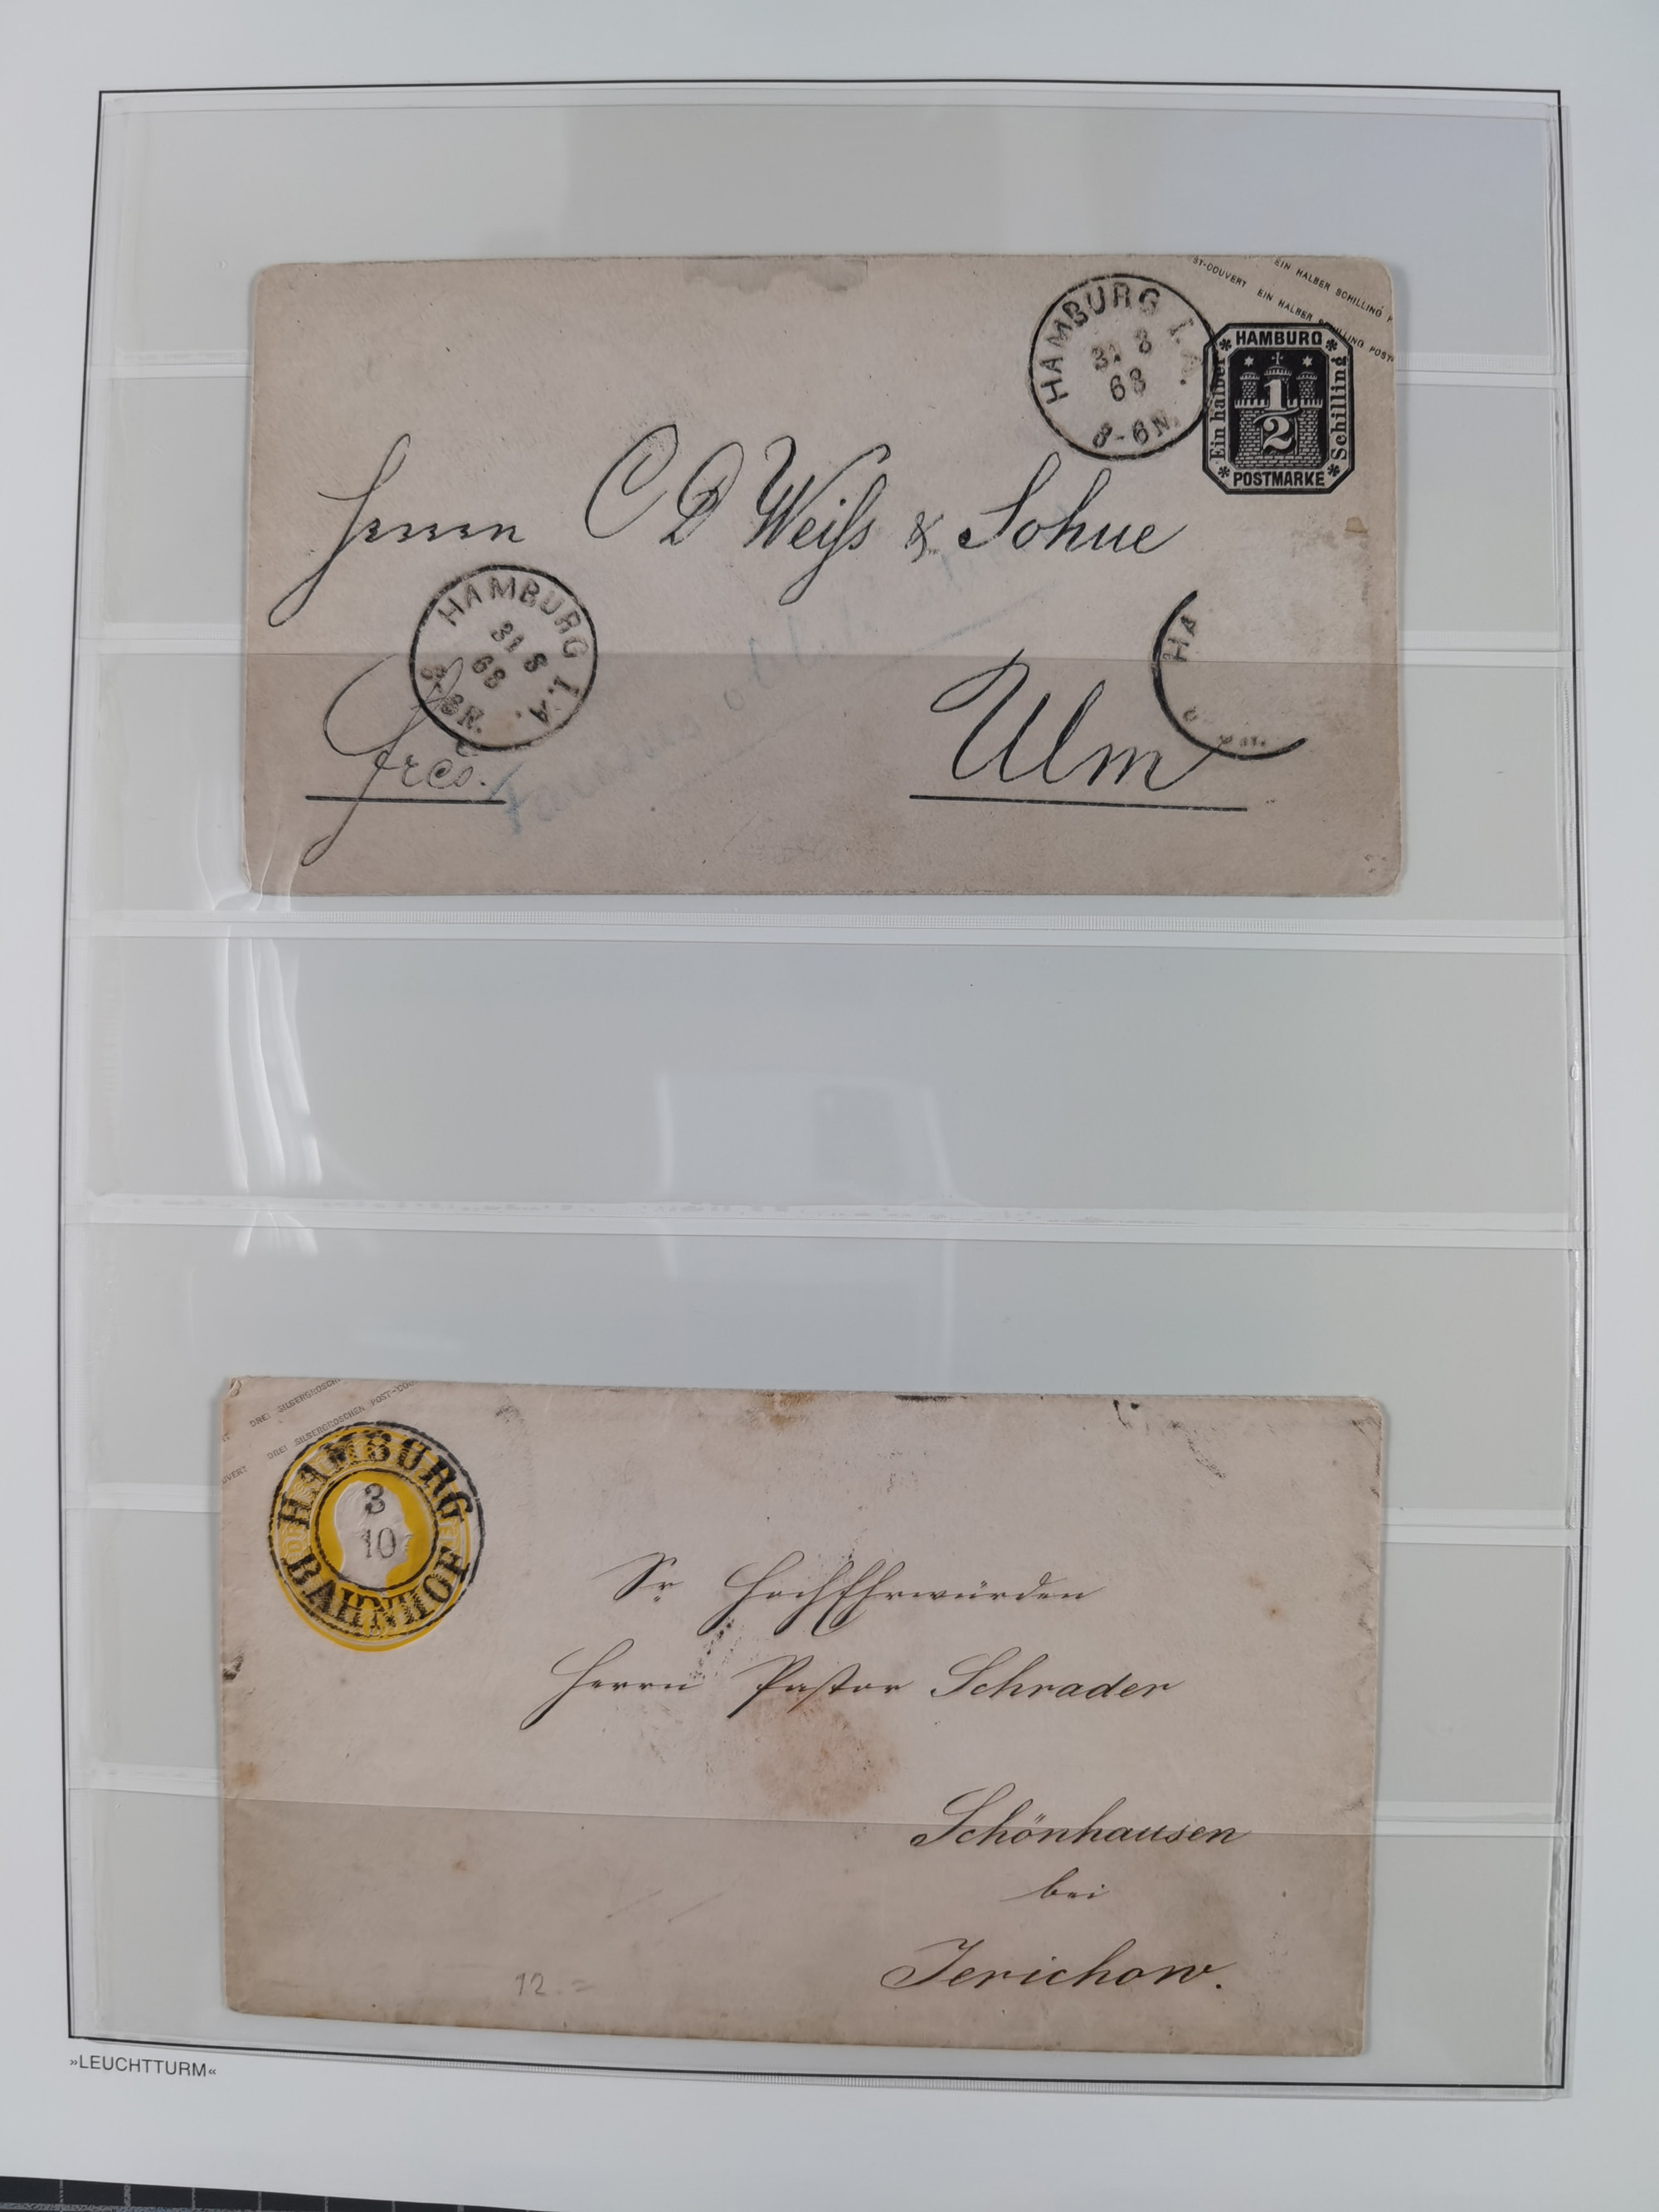 ST-COUVERT EIN HALBER SCHILLING POST
EIN HALBER SCHILLING P
HAMBURG I. A.
31 8
68
HAMBURG
Ein halber
1/2
Schilling
POSTMARKE
Herrn C D Weiss & Sohne
HAMBURG I. A.
31 8
68
HA
frco.
Ulm
DREI SILBERGROSCH
UVERT DREI SILBERGROSCHEN POST-COU
HAMBURG
3
10
BAHNHOF
Sr HochEhrwürden
Herrn Pastor Schrader
Schönhausen
bei
Jerichow.
12.=
»LEUCHTTURM«